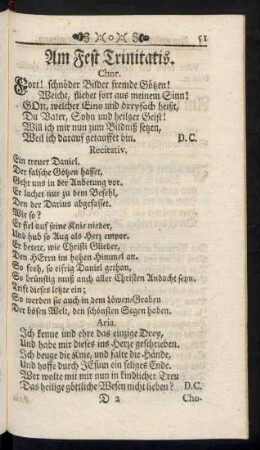 51
Am Fest Trinitatis.
Chor.
Fort! schnöder Bilder fremde Götzen!
Weiche, fliehet fort aus meinem Sinn!
GOtt, welcher Eins und dreyfach heißt,
Du Vater, Sohn und heilger Geist!
Will ich mir nun zum Bildniß setzen,
Weil ich darauf getauffet bin. D. C.
Recitativ.
Ein treuer Daniel,
Der falsche Götzen hasset,
Geht uns in der Anbetung vor.
Er lachet nur zu dem Befehl,
Den der Darius abgefasset.
Wie so?
Er fiel auf seine Knie nieder,
Und hub so Aug als Hertz empor.
Er betete, wie Christi Glieder,
Den HErrn im hohen Himmel an.
So froh, so eifrig Daniel gethan,
So brünstig muß auch aller Christen Andacht seyn.
Trift dieses letzte ein;
So werden sie auch in dem Löwen-Graben
Der bösen Welt, den schönsten Segen haben.
Aria.
Ich kenne und ehre das einzige Drey,
Und habe mir dieses ins Hertze geschrieben.
Ich beuge die Knie, und falte die Hände,
Und hoffe durch JEsum ein seliges Ende.
Wer wolte mit mir nun in kindlicher Treu
Das heilige göttliche Wesen nicht lieben? D.C.
D 2 Cho-